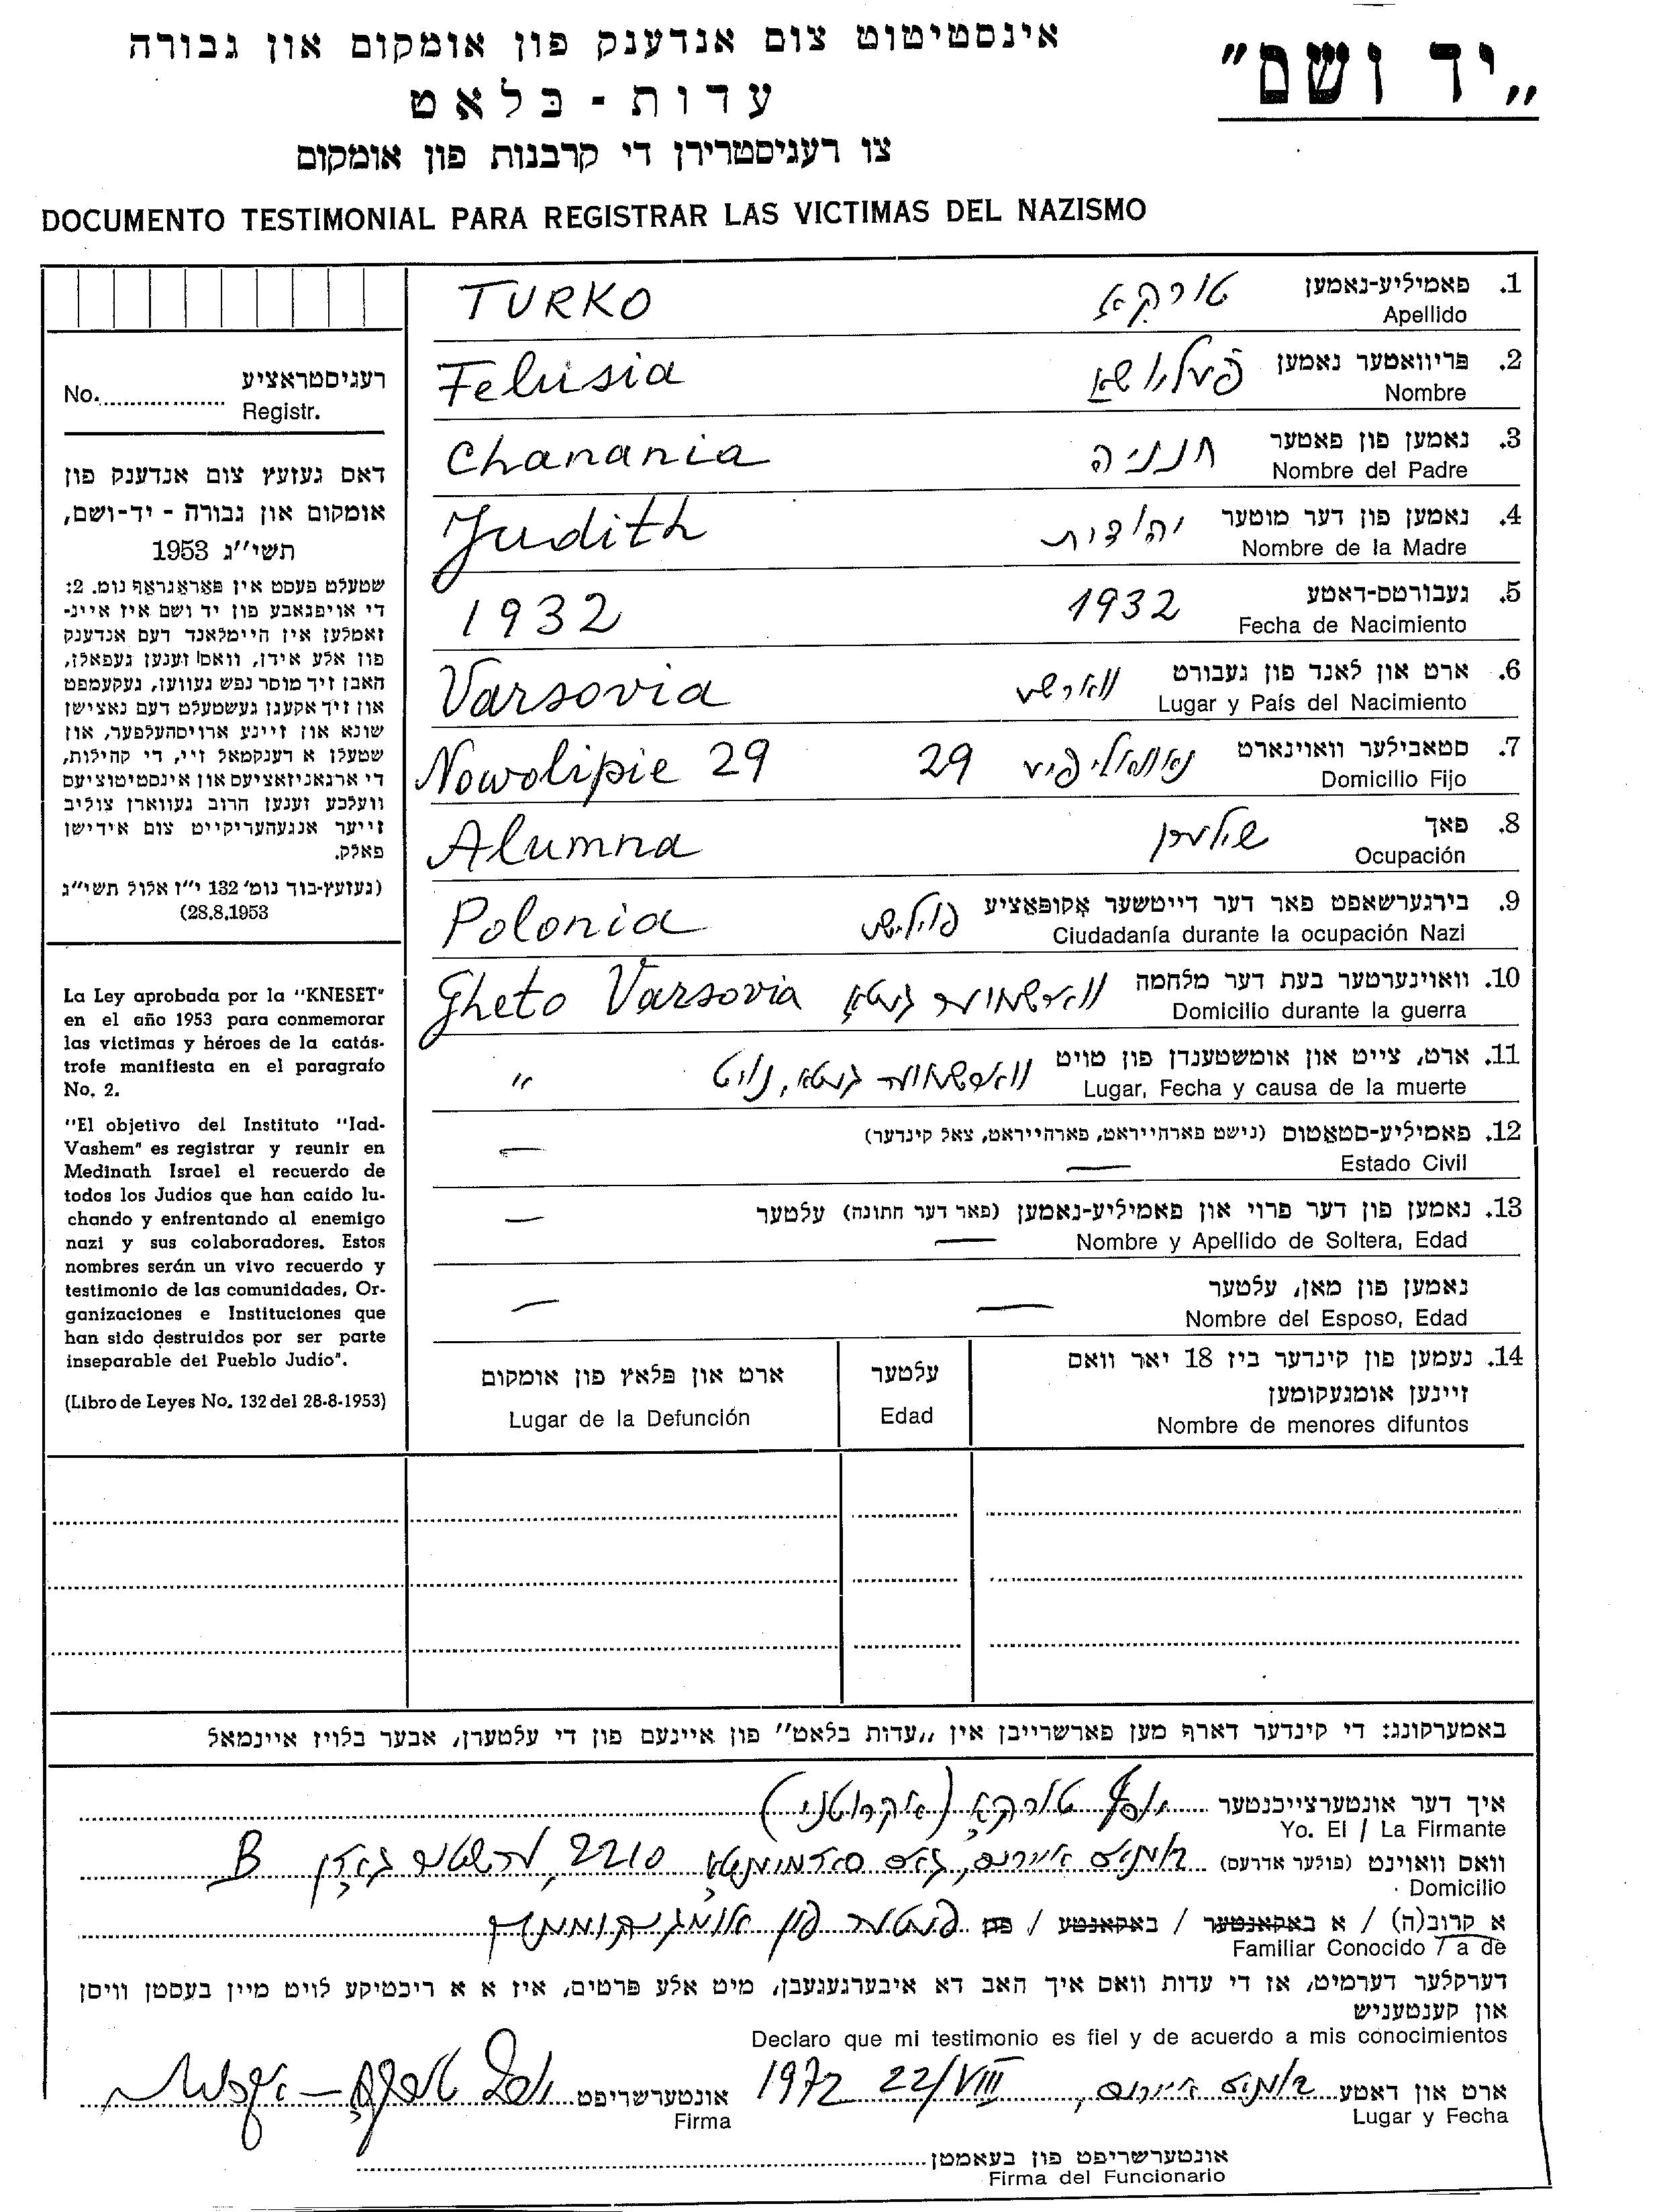 „יד ושם"
אינסטיטוט צום אנדענק פון אומקום און גבורה
עדות - בלאט
צו רעגיסטרירן די קרבנות פון אומקום
DOCUMENTO TESTIMONIAL PARA REGISTRAR LAS VICTIMAS DEL NAZISMO
1. פאמיליע-נאמען טורקאָ TURKO
Apellido
2. פריוואטער נאמען פעלושא Felusia
Nombre
3. נאמען פון פאטער חנניה Chanania
Nombre del Padre
4. נאמען פון דער מוטער יהודית Judith
Nombre de la Madre
5. געבורטס-דאטע 1932 1932
Fecha de Nacimiento
6. ארט און לאנד פון געבורט ווארשע Varsovia
Lugar y País del Nacimiento
7. סטאבילער וואוינארט נאוואליפיע 29 Nowolipie 29
Domicilio Fijo
8. פאך שילערן Alumna
Ocupación
9. בירגערשאפט פאר דער דייטשער אָקופּאַציע פויליש Polonia
Ciudadanía durante la ocupación Nazi
10. וואוינערטער בעת דער מלחמה ווארשעווער געטא Gheto Varsovia
Domicilio durante la guerra
11. ארט, צייט און אומשטענדן פון טויט ווארשעווער געטא, נויט "
Lugar, Fecha y causa de la muerte
12. פאמיליע-סטאטוס (נישט פארהייראט, פארהייראט, צאל קינדער)
— Estado Civil —
13. נאמען פון דער פרוי און פאמיליע-נאמען (פאר דער חתונה) עלטער
— Nombre y Apellido de Soltera, Edad —
נאמען פון מאן, עלטער
— Nombre del Esposo, Edad —
14. נעמען פון קינדער ביז 18 יאר וואס
זיינען אומגעקומען
Nombre de menores difuntos
עלטער
Edad
ארט און פלאץ פון אומקום
Lugar de la Defunción
רעגיסטראציע
No. Registr.
דאס געזעץ צום אנדענק פון
אומקום און גבורה - יד-ושם,
תשי"ג 1953
שטעלט פעסט אין פּאַראַגראַף נומ. 2:
די אויפגאבע פון יד ושם איז איינ-
זאמלען אין היימלאנד דעם אנדענק
פון אלע אידן, וואס זענען געפאלן,
האבן זיך מוסר נפש געווען, געקעמפט
און זיך אקעגן געשטעלט דעם נאצישן
שונא און זיינע ארויסהעלפער, און
שטעלן א דענקמאל זיי, די קהילות,
די ארגאניזאציעס און אינסטיטוציעס
וועלכע זענען חרוב געווארן צוליב
זייער אנגעהעריקייט צום אידישן
פאלק.
(געזעץ-בוך נומ' 132 י"ז אלול תשי"ג
28.8.1953)
La Ley aprobada por la "KNESET"
en el año 1953 para conmemorar
las victimas y héroes de la catás-
trofe manifiesta en el paragrafo
No. 2.
"El objetivo del Instituto "Iad-
Vashem" es registrar y reunir en
Medinath Israel el recuerdo de
todos los Judíos que han caído lu-
chando y enfrentando al enemigo
nazi y sus colaboradores. Estos
nombres serán un vivo recuerdo y
testimonio de las comunidades, Or-
ganizaciones e Instituciones que
han sido destruidos por ser parte
inseparable del Pueblo Judío".
(Libro de Leyes No. 132 del 28-8-1953)
באמערקונג: די קינדער דארף מען פארשרייבן אין „עדות בלאט" פון איינעם פון די עלטערן, אבער בלויז איינמאל
איך דער אונטערצייכנטער יוסף טורקאָ
Yo. El / La Firmante
וואס וואוינט (פולער אדרעס) בוענאס איירעס, גאס סארמיענטאָ 2210, B
Domicilio
א קרוב(ה) / א באקאנטער / באקאנטע / פון פעטער פון אומגעקומענער
Familiar Conocido / a de
דערקלער דערמיט, אז די עדות וואס איך האב דא איבערגעגעבן, מיט אלע פרטים, איז א א ריכטיקע לויט מיין בעסטן וויסן
און קענטעניש
Declaro que mi testimonio es fiel y de acuerdo a mis conocimientos
ארט און דאטע בוענאס איירעס, 22/VIII 1972 אונטערשריפט יוסף טורקאָ
Lugar y Fecha Firma
אונטערשריפט פון בעאמטן
Firma del Funcionario